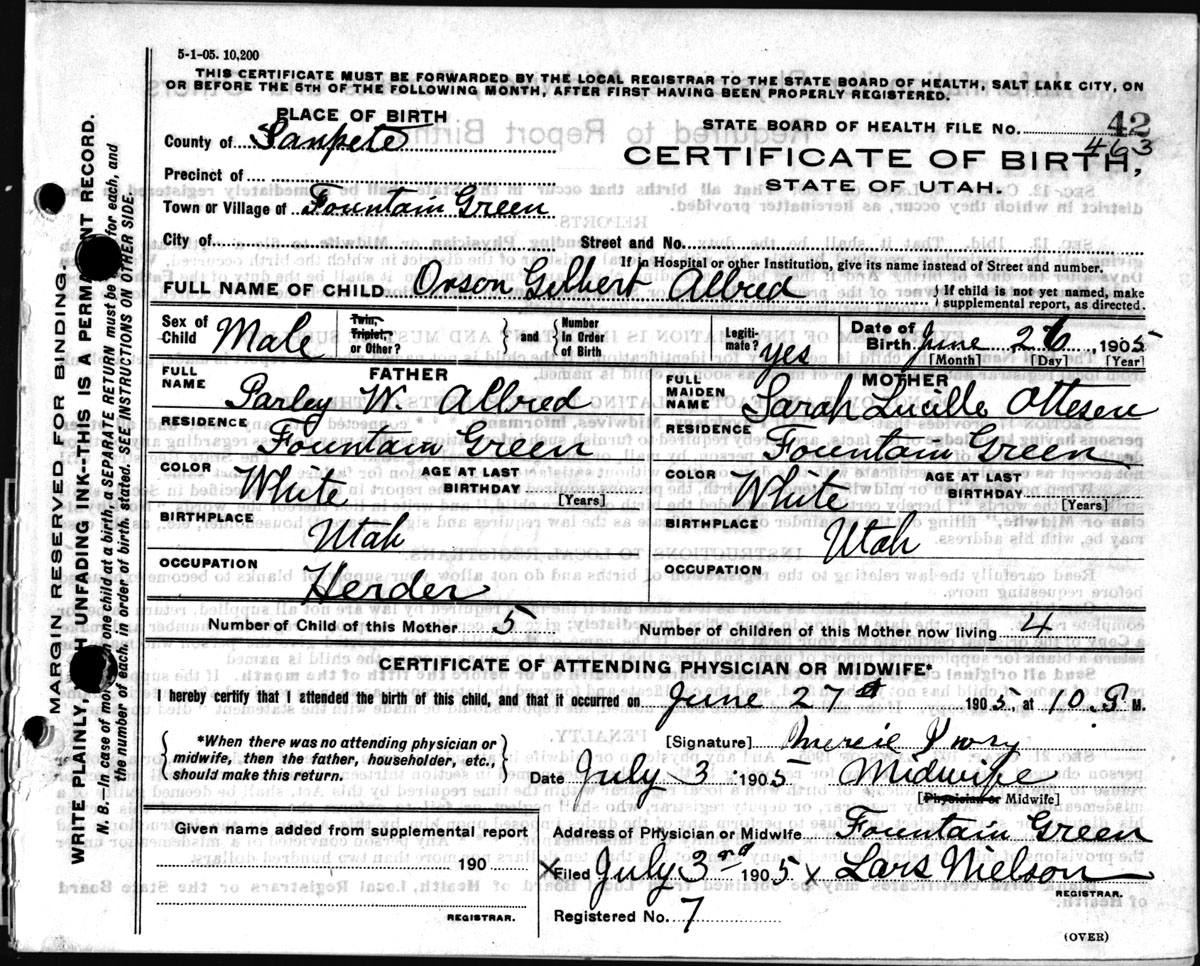 5-1-05. 10,200
THIS CERTIFICATE MUST BE FORWARDED BY THE LOCAL REGISTRAR TO THE STATE BOARD OF HEALTH, SALT LAKE CITY, ON
OR BEFORE THE 5TH OF THE FOLLOWING MONTH, AFTER FIRST HAVING BEEN PROPERLY REGISTERED.
PLACE OF BIRTH
STATE BOARD OF HEALTH FILE No. 42
463
County of Sanpete
CERTIFICATE OF BIRTH,
STATE OF UTAH.
Precinct of
Town or Village of Fountain Green
City of Street and No.
If in Hospital or other Institution, give its name instead of Street and number.
FULL NAME OF CHILD Orson Gilbert Allred
} If child is not yet named, make
supplemental report, as directed.
Sex of Child Male
Twin, Triplet, or Other?
and
Number In Order of Birth
Legiti- mate? yes
Date of Birth June 26, 1905
[Month] [Day] [Year]
FATHER
FULL NAME Parley W. Allred
RESIDENCE Fountain Green
COLOR White AGE AT LAST BIRTHDAY [Years]
BIRTHPLACE Utah
OCCUPATION Herder
MOTHER
FULL MAIDEN NAME Sarah Lucille Ottesen
RESIDENCE Fountain Green
COLOR White AGE AT LAST BIRTHDAY [Years]
BIRTHPLACE Utah
OCCUPATION
Number of Child of this Mother 5 Number of children of this Mother now living 4
CERTIFICATE OF ATTENDING PHYSICIAN OR MIDWIFE*
I hereby certify that I attended the birth of this child, and that it occurred on June 27 1905, at 10 P M.
*When there was no attending physician or
midwife, then the father, householder, etc.,
should make this return.
[Signature]
Date July 3 1905 Midwife
[Physician or Midwife]
Given name added from supplemental report
190
REGISTRAR.
Address of Physician or Midwife Fountain Green
X Filed July 3rd 1905 x Lars Nielson
REGISTRAR.
Registered No. 7
(OVER)
MARGIN RESERVED FOR BINDING.
WRITE PLAINLY, UNFADING INK--THIS IS A RECORD.
N. B.--In case of one child at a birth, a SEPARATE RETURN must be for each, and
the number of each, in order of birth, stated. SEE INSTRUCTIONS ON OTHER SIDE.